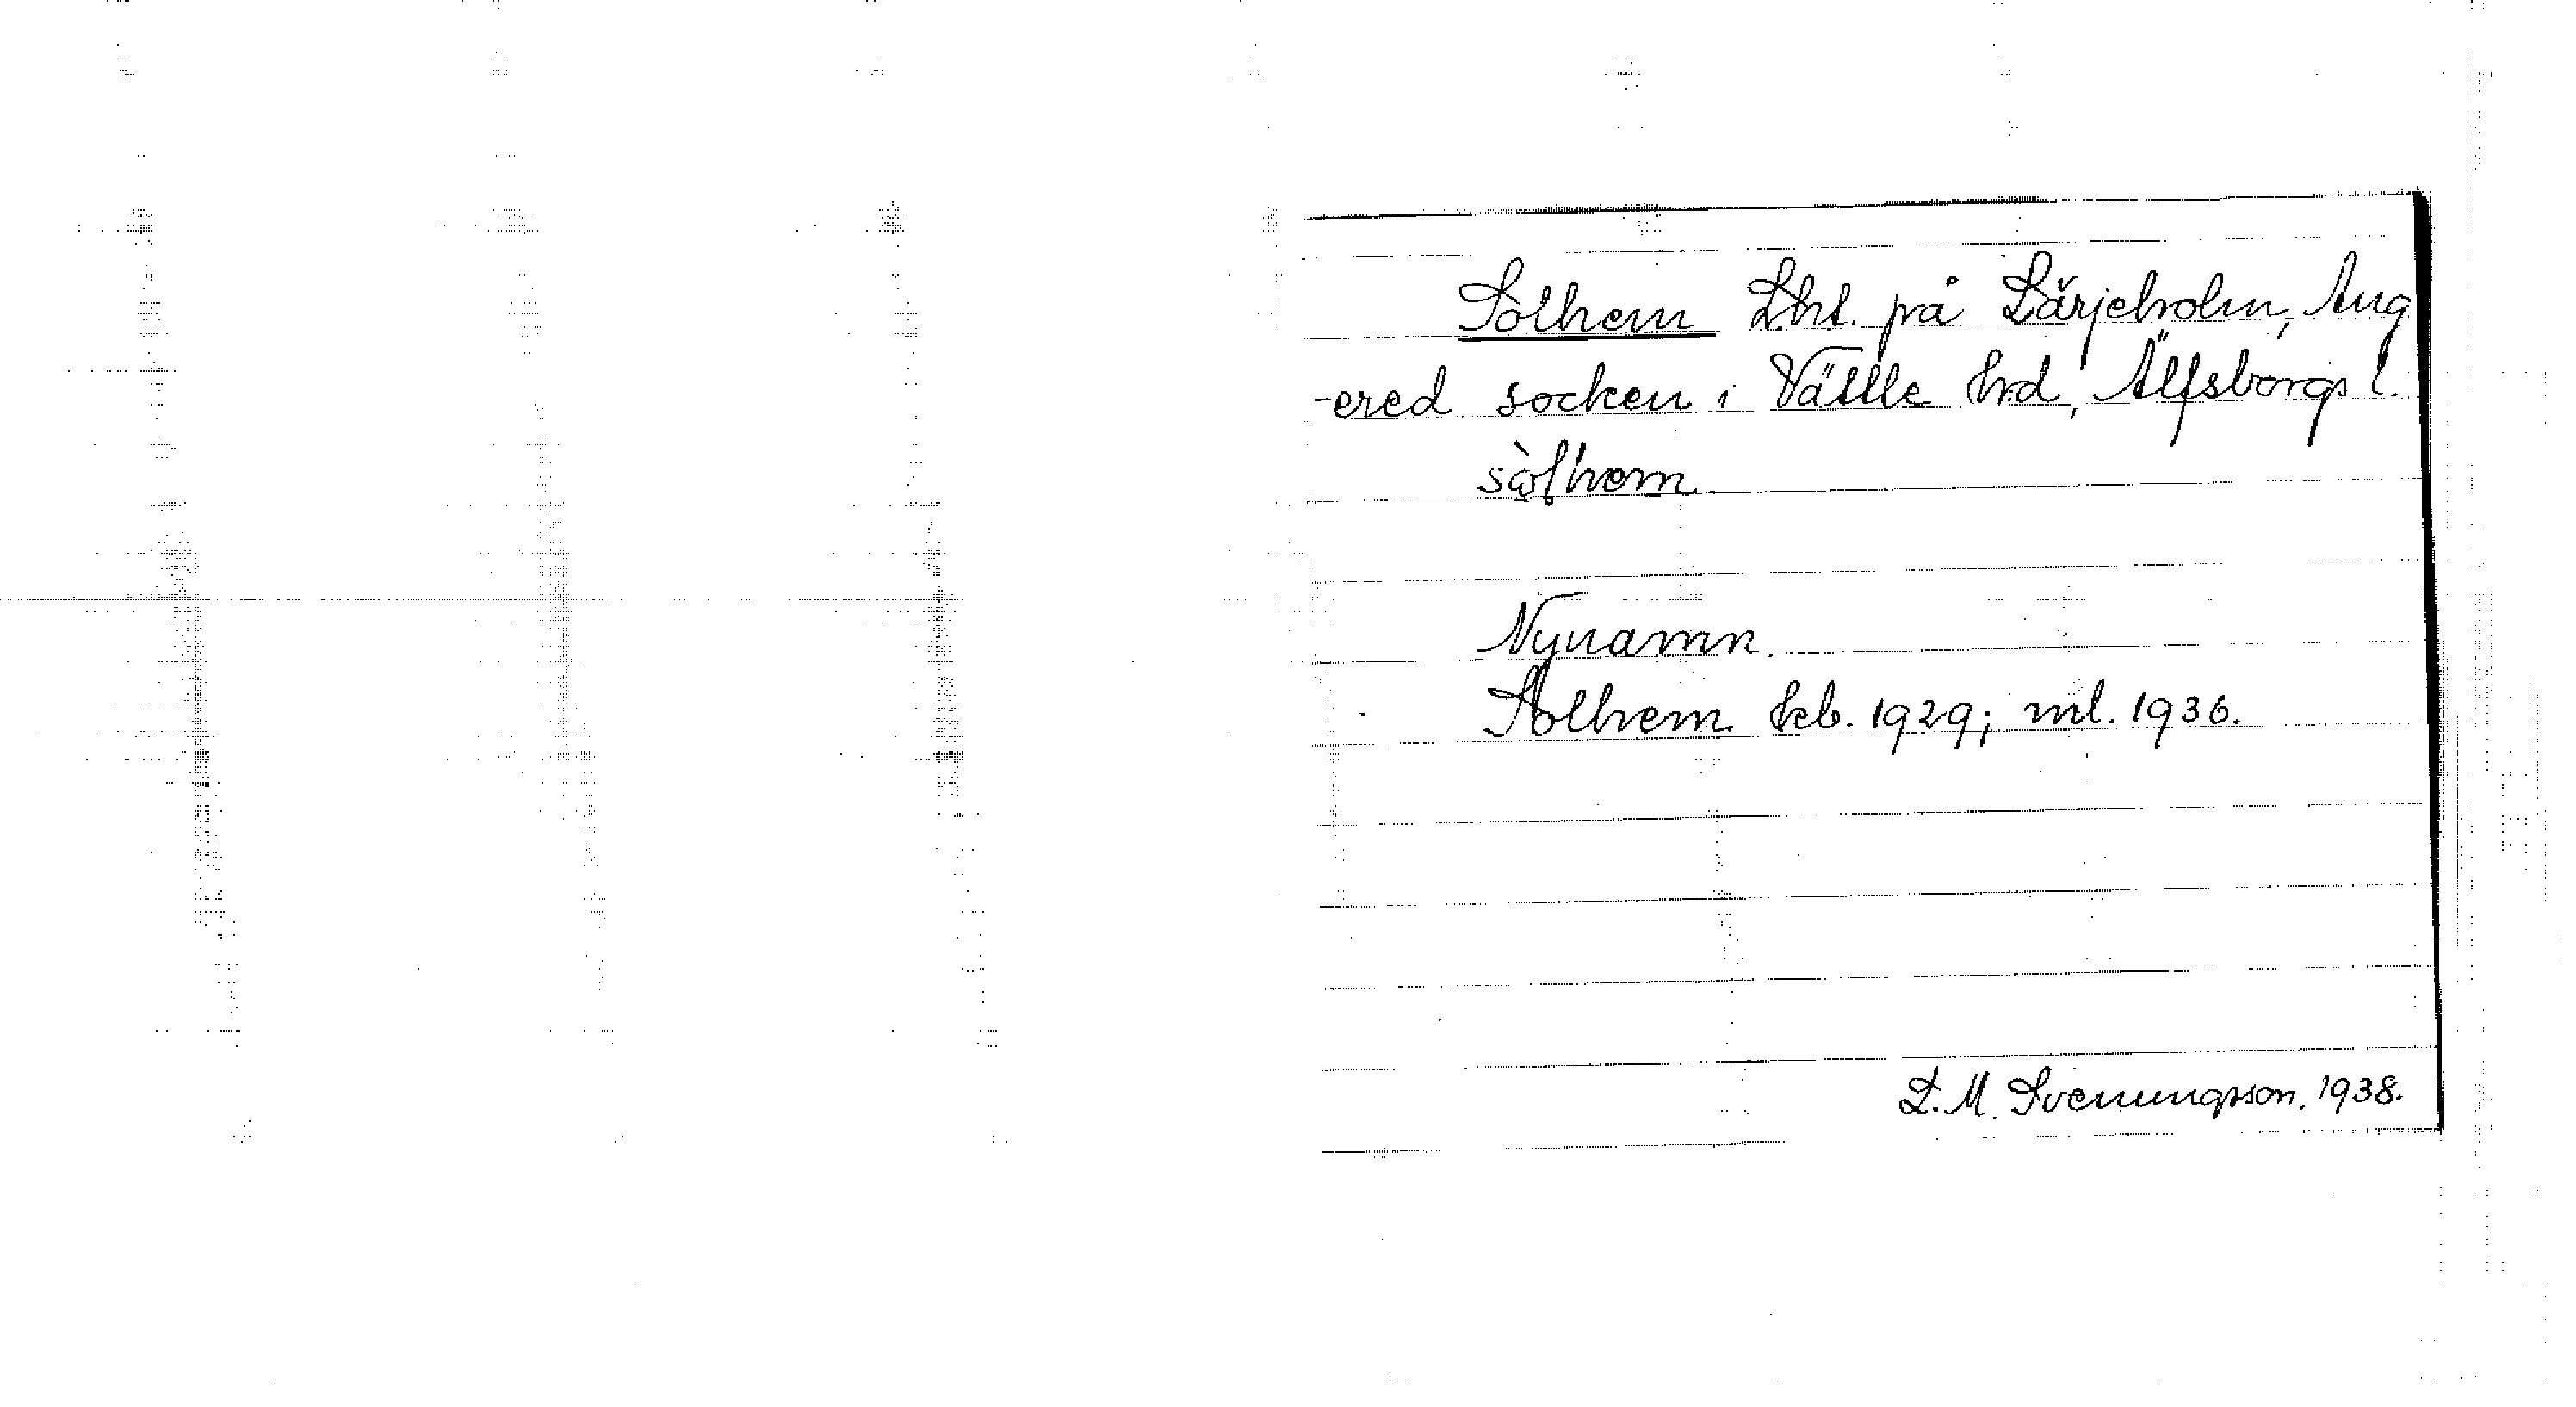 Solhem Lht. på Lärjeholm, Ang
-ered socken i Vättle hrd, Älfsborgs l.
sòlhem
Nynamn
Solhem kb. 1929; ml. 1936.
L. M. Svenungsson. 1938.